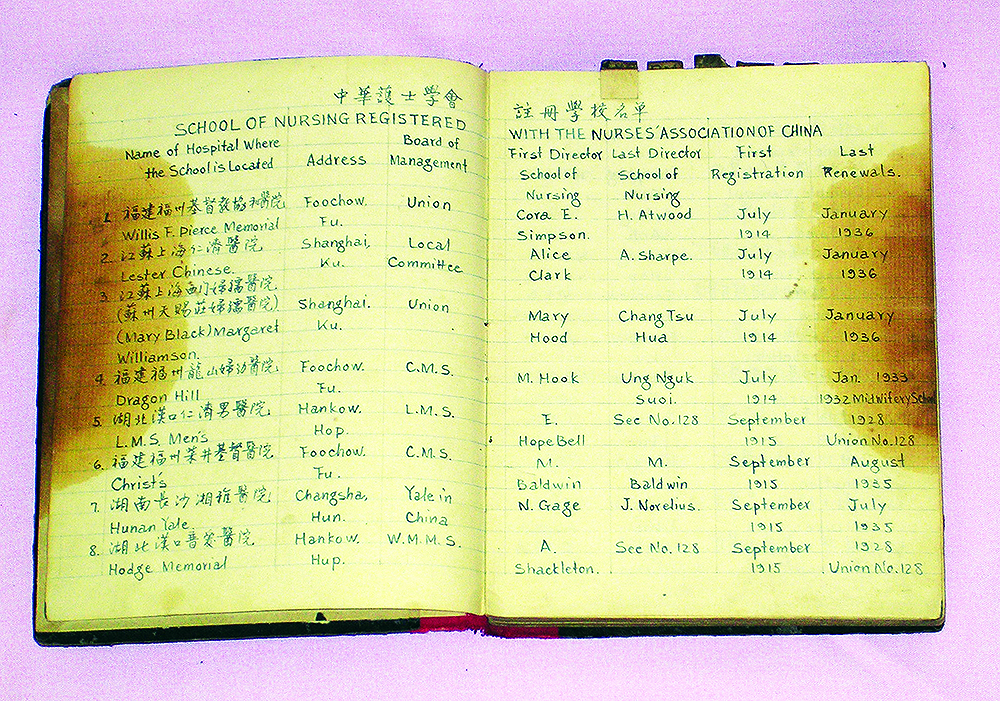 中華護士學會
SCHOOL OF NURSING REGISTERED
Name of Hospital Where the School is Located
Address
Board of Management
1. 福建福州基督教協和醫院 Foochow. Union
Willis F. Pierce Memorial Fu.
2. 江蘇上海仁濟醫院 Shanghai, Local
Lester Chinese. Ku. Committee
3. 江蘇上海西门婦孺醫院
(蘇州天賜莊婦孺醫院) Shanghai. Union
(Mary Black) Margaret Ku.
Williamson.
4. 福建福州龍山婦幼醫院 Foochow. C.M.S.
Dragon Hill Fu.
5. 湖北漢口仁濟男醫院 Hankow. L.M.S.
L.M.S. Men's Hop.
6. 福建福州柴井基督醫院 Foochow. C.M.S.
Christ's Fu.
7. 湖南長沙湘雅醫院 Changsha, Yale in
Hunan Yale. Hun. China
8. 湖北漢口普愛醫院 Hankow. W.M.M.S.
Hodge Memorial Hup.
註冊學校名单
WITH THE NURSES' ASSOCIATION OF CHINA
First Director Last Director First Last
School of School of Registration Renewals.
Nursing Nursing
Cora E. H. Atwood July January
Simpson. 1914 1936
Alice A. Sharpe. July January
Clark 1914 1936
Mary Chang Tsu July January
Hood Hua 1914 1936
M. Hook Ung Nguk July Jan. 1933
Suoi. 1914 1932 Midwifery School
E. Sec No. 128 September 1928
Hope Bell 1915 Union No. 128
M. M. September August
Baldwin Baldwin 1915 1935
N. Gage J. Norelius. September July
1915 1935
A. Sec No. 128 September 1928
Shackleton. 1915 Union No. 128